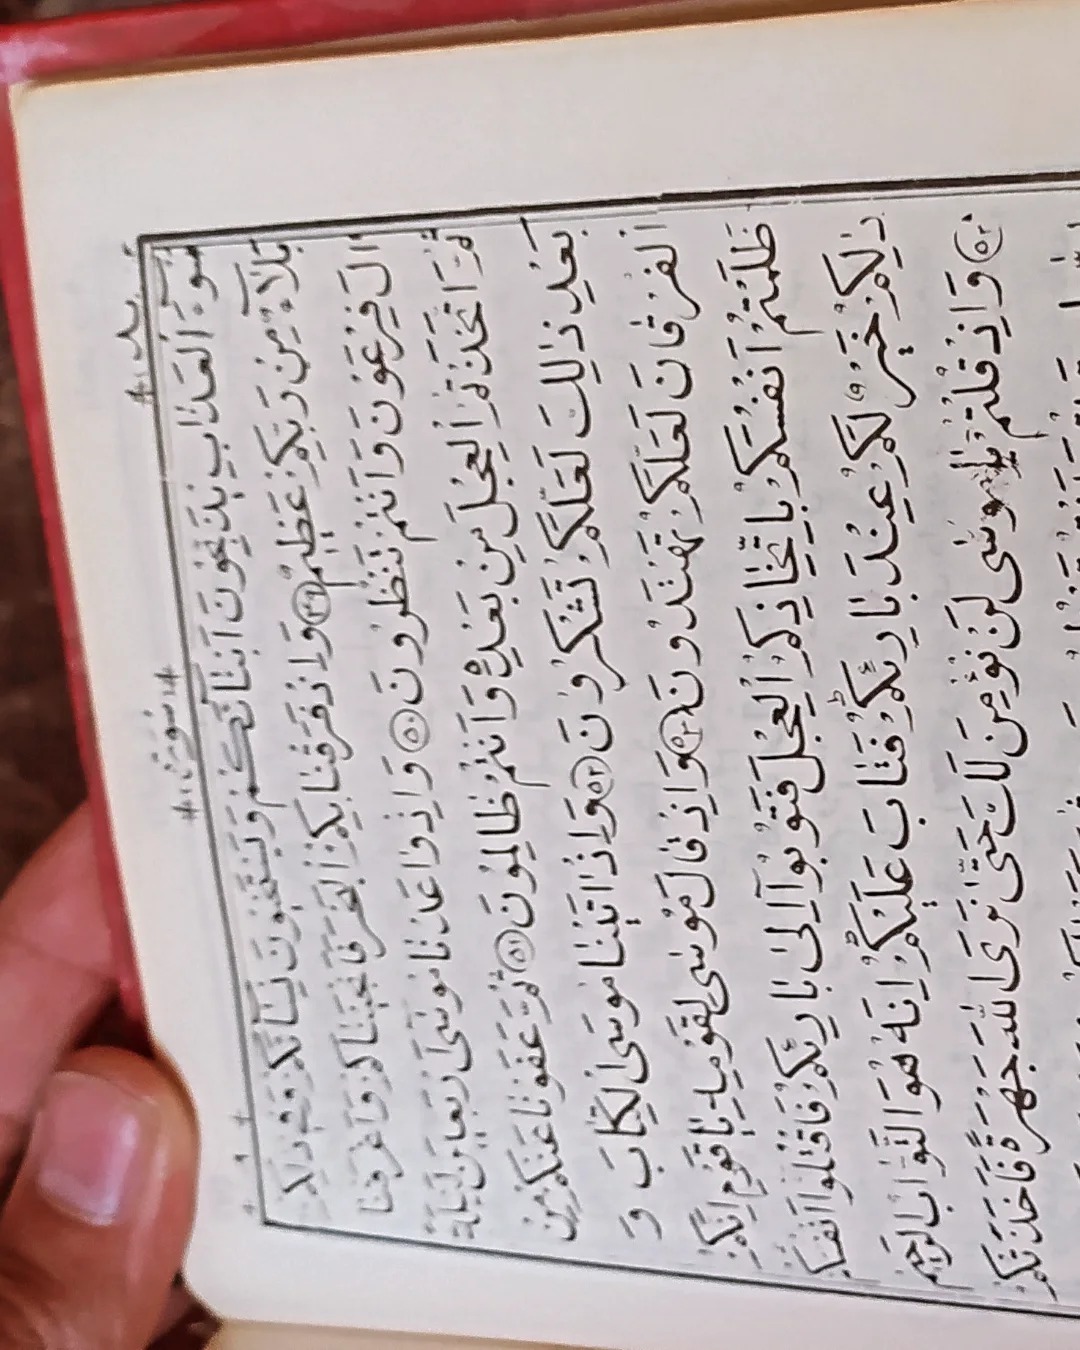 سُوٓءَ الْعَذَابِ يُذَبِّحُونَ اَبْنَآءَكُمْ وَيَسْتَحْيُونَ نِسَآءَكُمْ وَفِي ذٰلِكُمْ
بَلَآءٌ مِنْ رَبِّكُمْ عَظِيمٌ ﴿٤٩﴾ وَاِذْ فَرَقْنَا بِكُمُ الْبَحْرَ فَاَنْجَيْنَاكُمْ وَاَغْرَقْنَا
اٰلَ فِرْعَوْنَ وَاَنْتُمْ تَنْظُرُونَ ﴿٥٠﴾ وَاِذْ وٰاعَدْنَا مُوسٰٓى اَرْبَعِينَ لَيْلَةً
ثُمَّ اتَّخَذْتُمُ الْعِجْلَ مِنْ بَعْدِهِ وَاَنْتُمْ ظَالِمُونَ ﴿٥١﴾ ثُمَّ عَفَوْنَا عَنْكُمْ مِنْ
بَعْدِ ذٰلِكَ لَعَلَّكُمْ تَشْكُرُونَ ﴿٥٢﴾ وَاِذْ اٰتَيْنَا مُوسَى الْكِتَابَ وَ
الْفُرْقَانَ لَعَلَّكُمْ تَهْتَدُونَ ﴿٥٣﴾ وَاِذْ قَالَ مُوسٰى لِقَوْمِهِ يَا قَوْمِ اِنَّكُمْ
ظَلَمْتُمْ اَنْفُسَكُمْ بِاتِّخَاذِكُمُ الْعِجْلَ فَتُوبُوٓا اِلٰى بَارِئِكُمْ فَاقْتُلُوٓا اَنْفُسَكُمْ
ذٰلِكُمْ خَيْرٌ لَكُمْ عِنْدَ بَارِئِكُمْ فَتَابَ عَلَيْكُمْ اِنَّهُ هُوَ التَّوَّابُ الرَّحِيمُ
﴿٥٤﴾ وَاِذْ قُلْتُمْ يَا مُوسٰى لَنْ نُؤْمِنَ لَكَ حَتّٰى نَرَى اللّٰهَ جَهْرَةً فَاَخَذَتْكُمُ